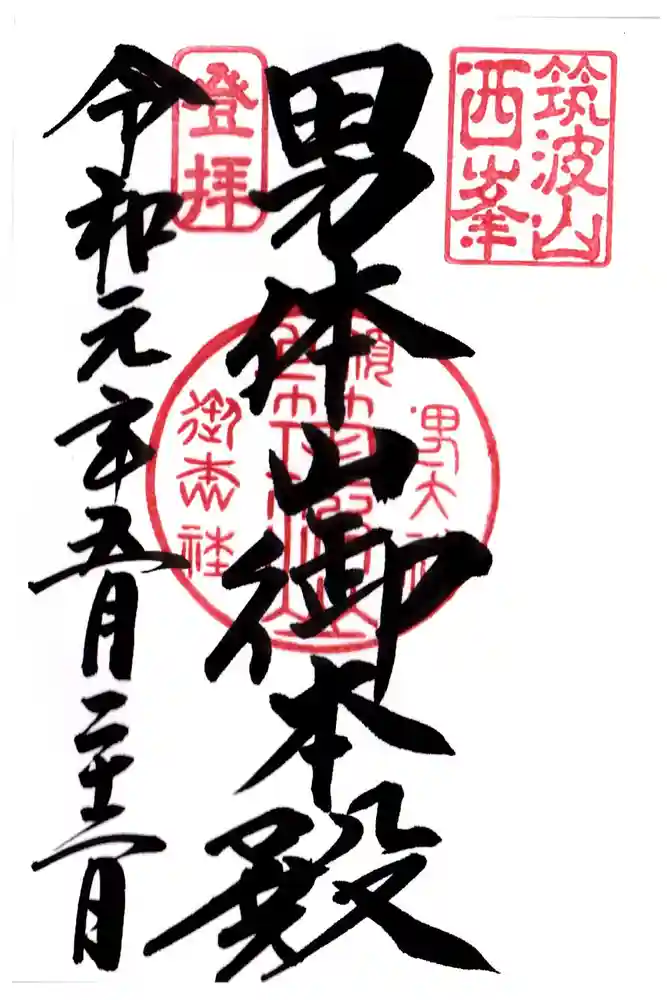 筑波山
西峯
男体山御本殿
登拝
御本社
令和元年五月二十二日